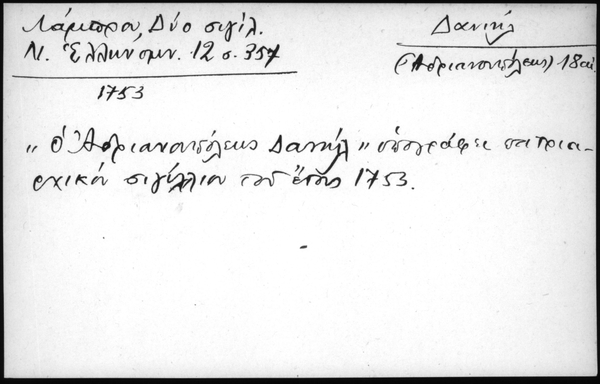 Λάμπρου, Δύο σιγίλ.
Ν. Ἑλληνομν. 12 σ. 357
1753
Δανιήλ
(Ἀδριανουπόλεως) 18 αἰ.
"ὁ Ἀδριανουπόλεως Δανιήλ" ὑπογράφει πατρια-
ρχικόν σιγίλλιον τοῦ ἔτους 1753.